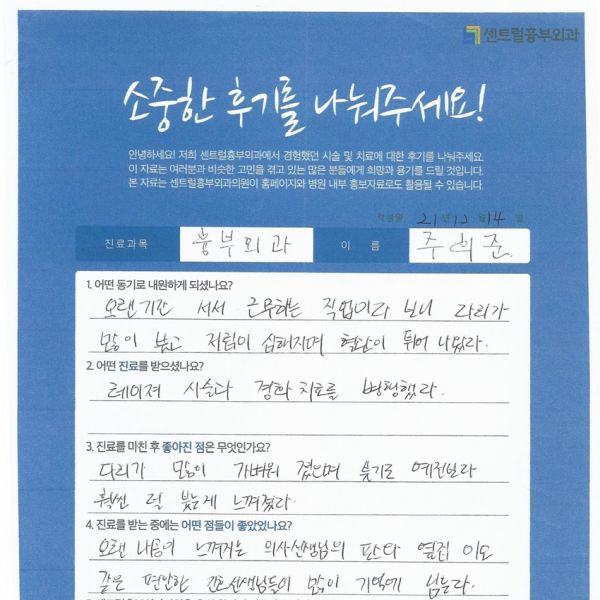 센트럴흉부외과
소중한 후기를 나눠주세요!
안녕하세요! 저희 센트럴흉부외과에서 경험했던 시술 및 치료에 대한 후기를 나눠주세요.
이 자료는 여러분과 비슷한 고민을 겪고 있는 많은 분들에게 희망과 용기를 드릴 것입니다.
본 자료는 센트럴흉부외과의원이 홈페이지와 병원 내부 홍보자료로도 활용될 수 있습니다.
작성일 21 년 12 월 14 일
진료과목 흉부외과 이 름 주희준
1. 어떤 동기로 내원하게 되셨나요?
오랜기간 서서 근무하는 직업이라 보니 다리가
많이 붓고 저림이 심해지며 혈관이 튀어 나왔다.
2. 어떤 진료를 받으셨나요?
레이져 시술과 경화치료를 병행했다.
3. 진료를 마친 후 좋아진 점은 무엇인가요?
다리가 많이 가벼워 졌으며 붓기도 예전보다
훨씬 덜 붓는게 느껴졌다.
4. 진료를 받는 중에는 어떤 점들이 좋았었나요?
오랜 내공이 느껴지는 의사선생님의 옆집 이모
같은 편안한 간호선생님들이 많이 기억에 남는다.